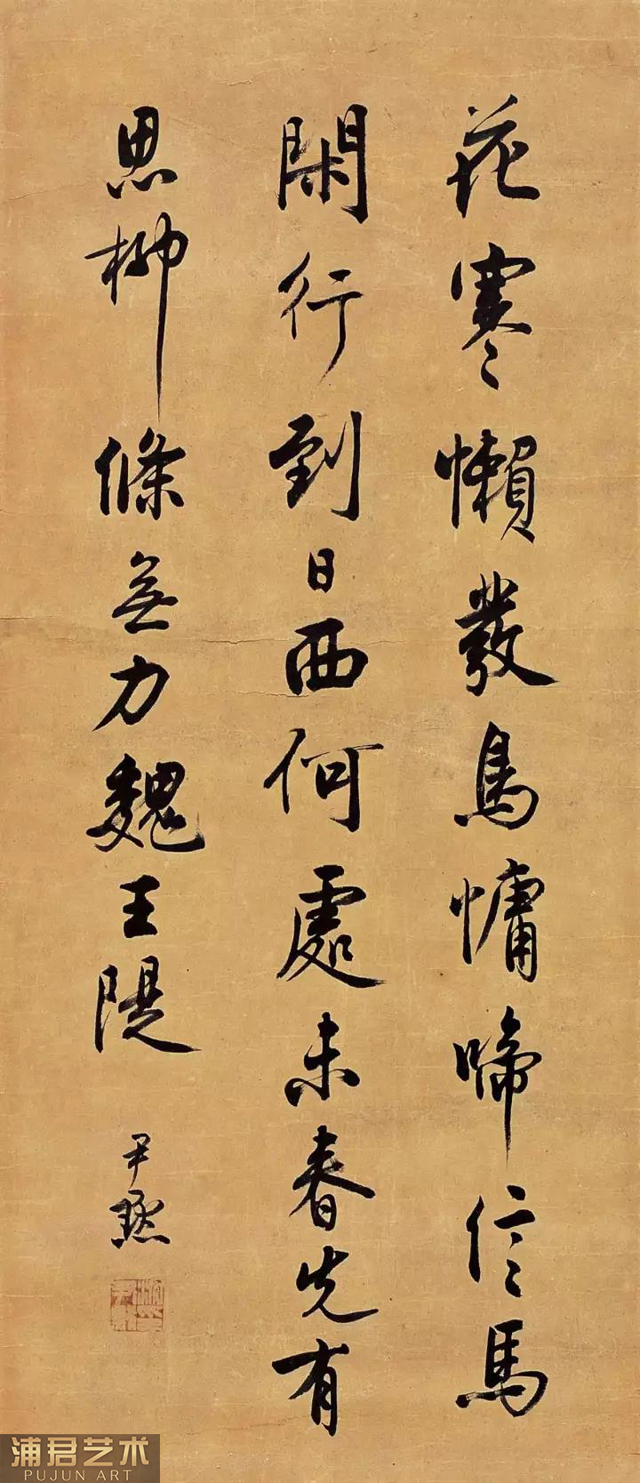 花寒懶發鳥慵啼信馬
閑行到日西何處未春先有
思柳條無力魏王隄
尹默
浦君艺术
PUJUN ART